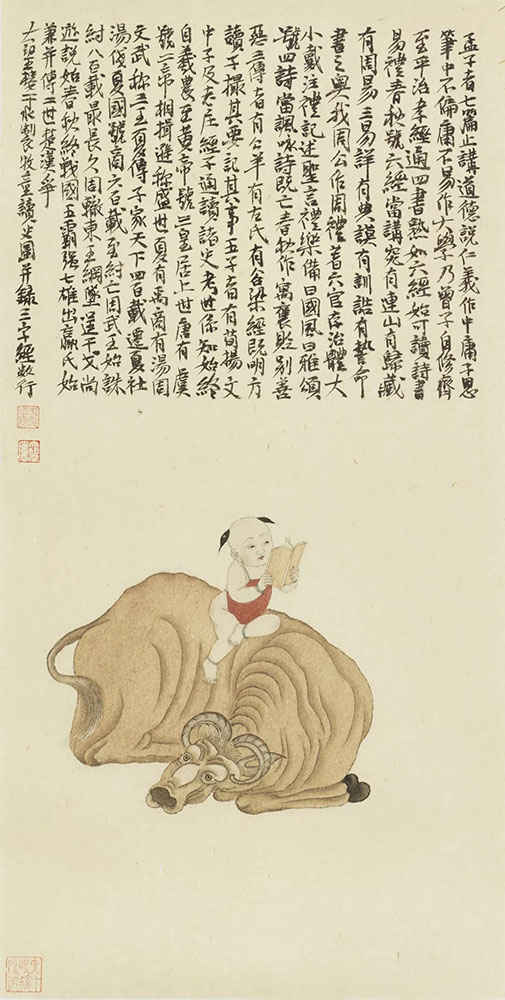 孟子者七篇止講道德說仁義作中庸子思
筆中不偏庸不易作大學乃曾子自修齊
至平治孝經通四書熟如六經始可讀詩書
易禮春秋號六經當講究有連山有歸藏
有周易三易詳有典謨有訓誥有誓命
書之奧我周公作周禮著六官存治體大
小戴注禮記述聖言禮樂備曰國風曰雅頌
號四詩當諷詠詩既亡春秋作寓褒貶別善
惡三傳者有公羊有左氏有谷梁經既明方
讀子撮其要記其事五子者有荀揚文
中子及老莊經子通讀諸史考世係知始終
自羲農至黃帝號三皇居上世唐有虞
號二帝相揖遜稱盛世夏有禹商有湯周
文武稱三王夏傳子家天下四百載遷夏社
湯伐夏國號商六百載至紂亡周武王始誅
紂八百載最長久周轍東王綱墜逞干戈尚
遊說始春秋終戰國五霸強七雄出嬴氏始
兼并傳二世楚漢爭
製牧童讀書圖并錄三字經數行